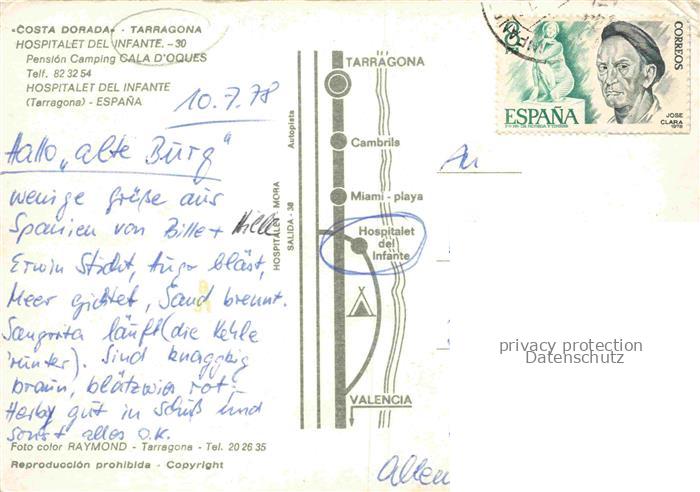 «COSTA DORADA» - TARRAGONA
HOSPITALET DEL INFANTE. - 30
Pensión Camping CALA D'OQUES
Telf. 82 32 54
HOSPITALET DEL INFANTE
(Tarragona) - ESPAÑA
10.7.78
Hallo „alte Burg"
wenige grüße aus
Spanien von Bille + Hille
Erwin Sticht, bläst,
Meer gichtet, Sand brennt.
Sangrita läuft (die Kehle
runter). Sind knaggig
braun, blätzwis rot.
Herby gut in Schuß und
sonst alles O.K.
Foto color RAYMOND - Tarragona - Tel. 20 26 35
Reproducción prohibida - Copyright
Autopista
HOSPITALET - MORA
SALIDA - 38
TARRAGONA
Cambrils
Miami - playa
Hospitalet
del
Infante
VALENCIA
An
CORREOS
ESPAÑA
JOSE
CLARA
1978
privacy protection
Datenschutz